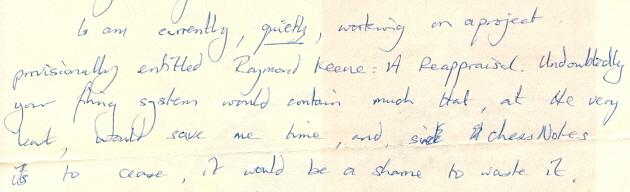 I am currently, quietly, working on a project
provisionally entitled Raymond Keene: A Reappraisal. Undoubtedly
your filing system would contain much that, at the very
least, would save me time, and, since Chess Notes
is to cease, it would be a shame to waste it.